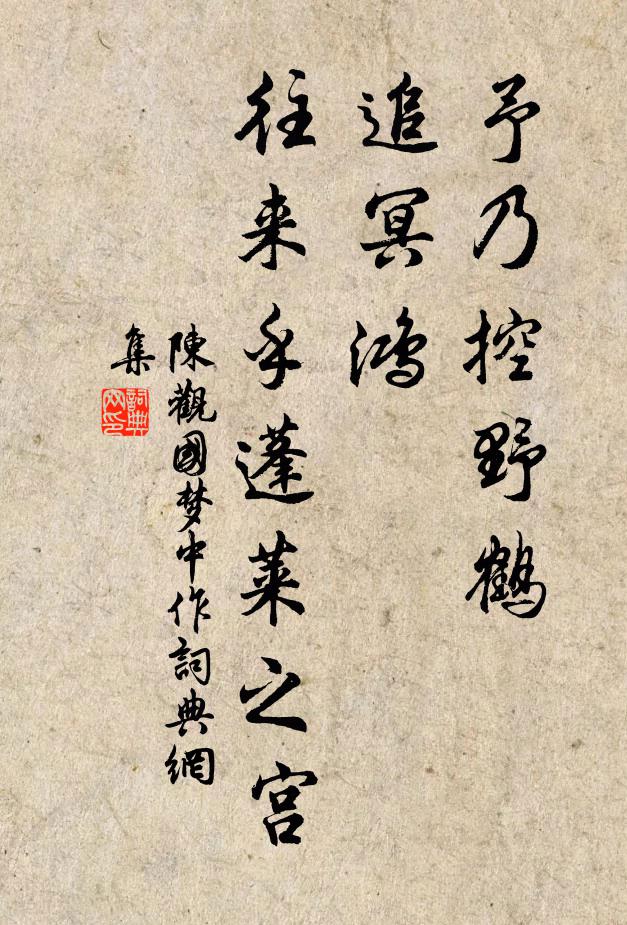 予乃控野鹤
追冥鸿
往来乎蓬莱之宫
陳觀國梦中作詞典網
集
詞典
网印